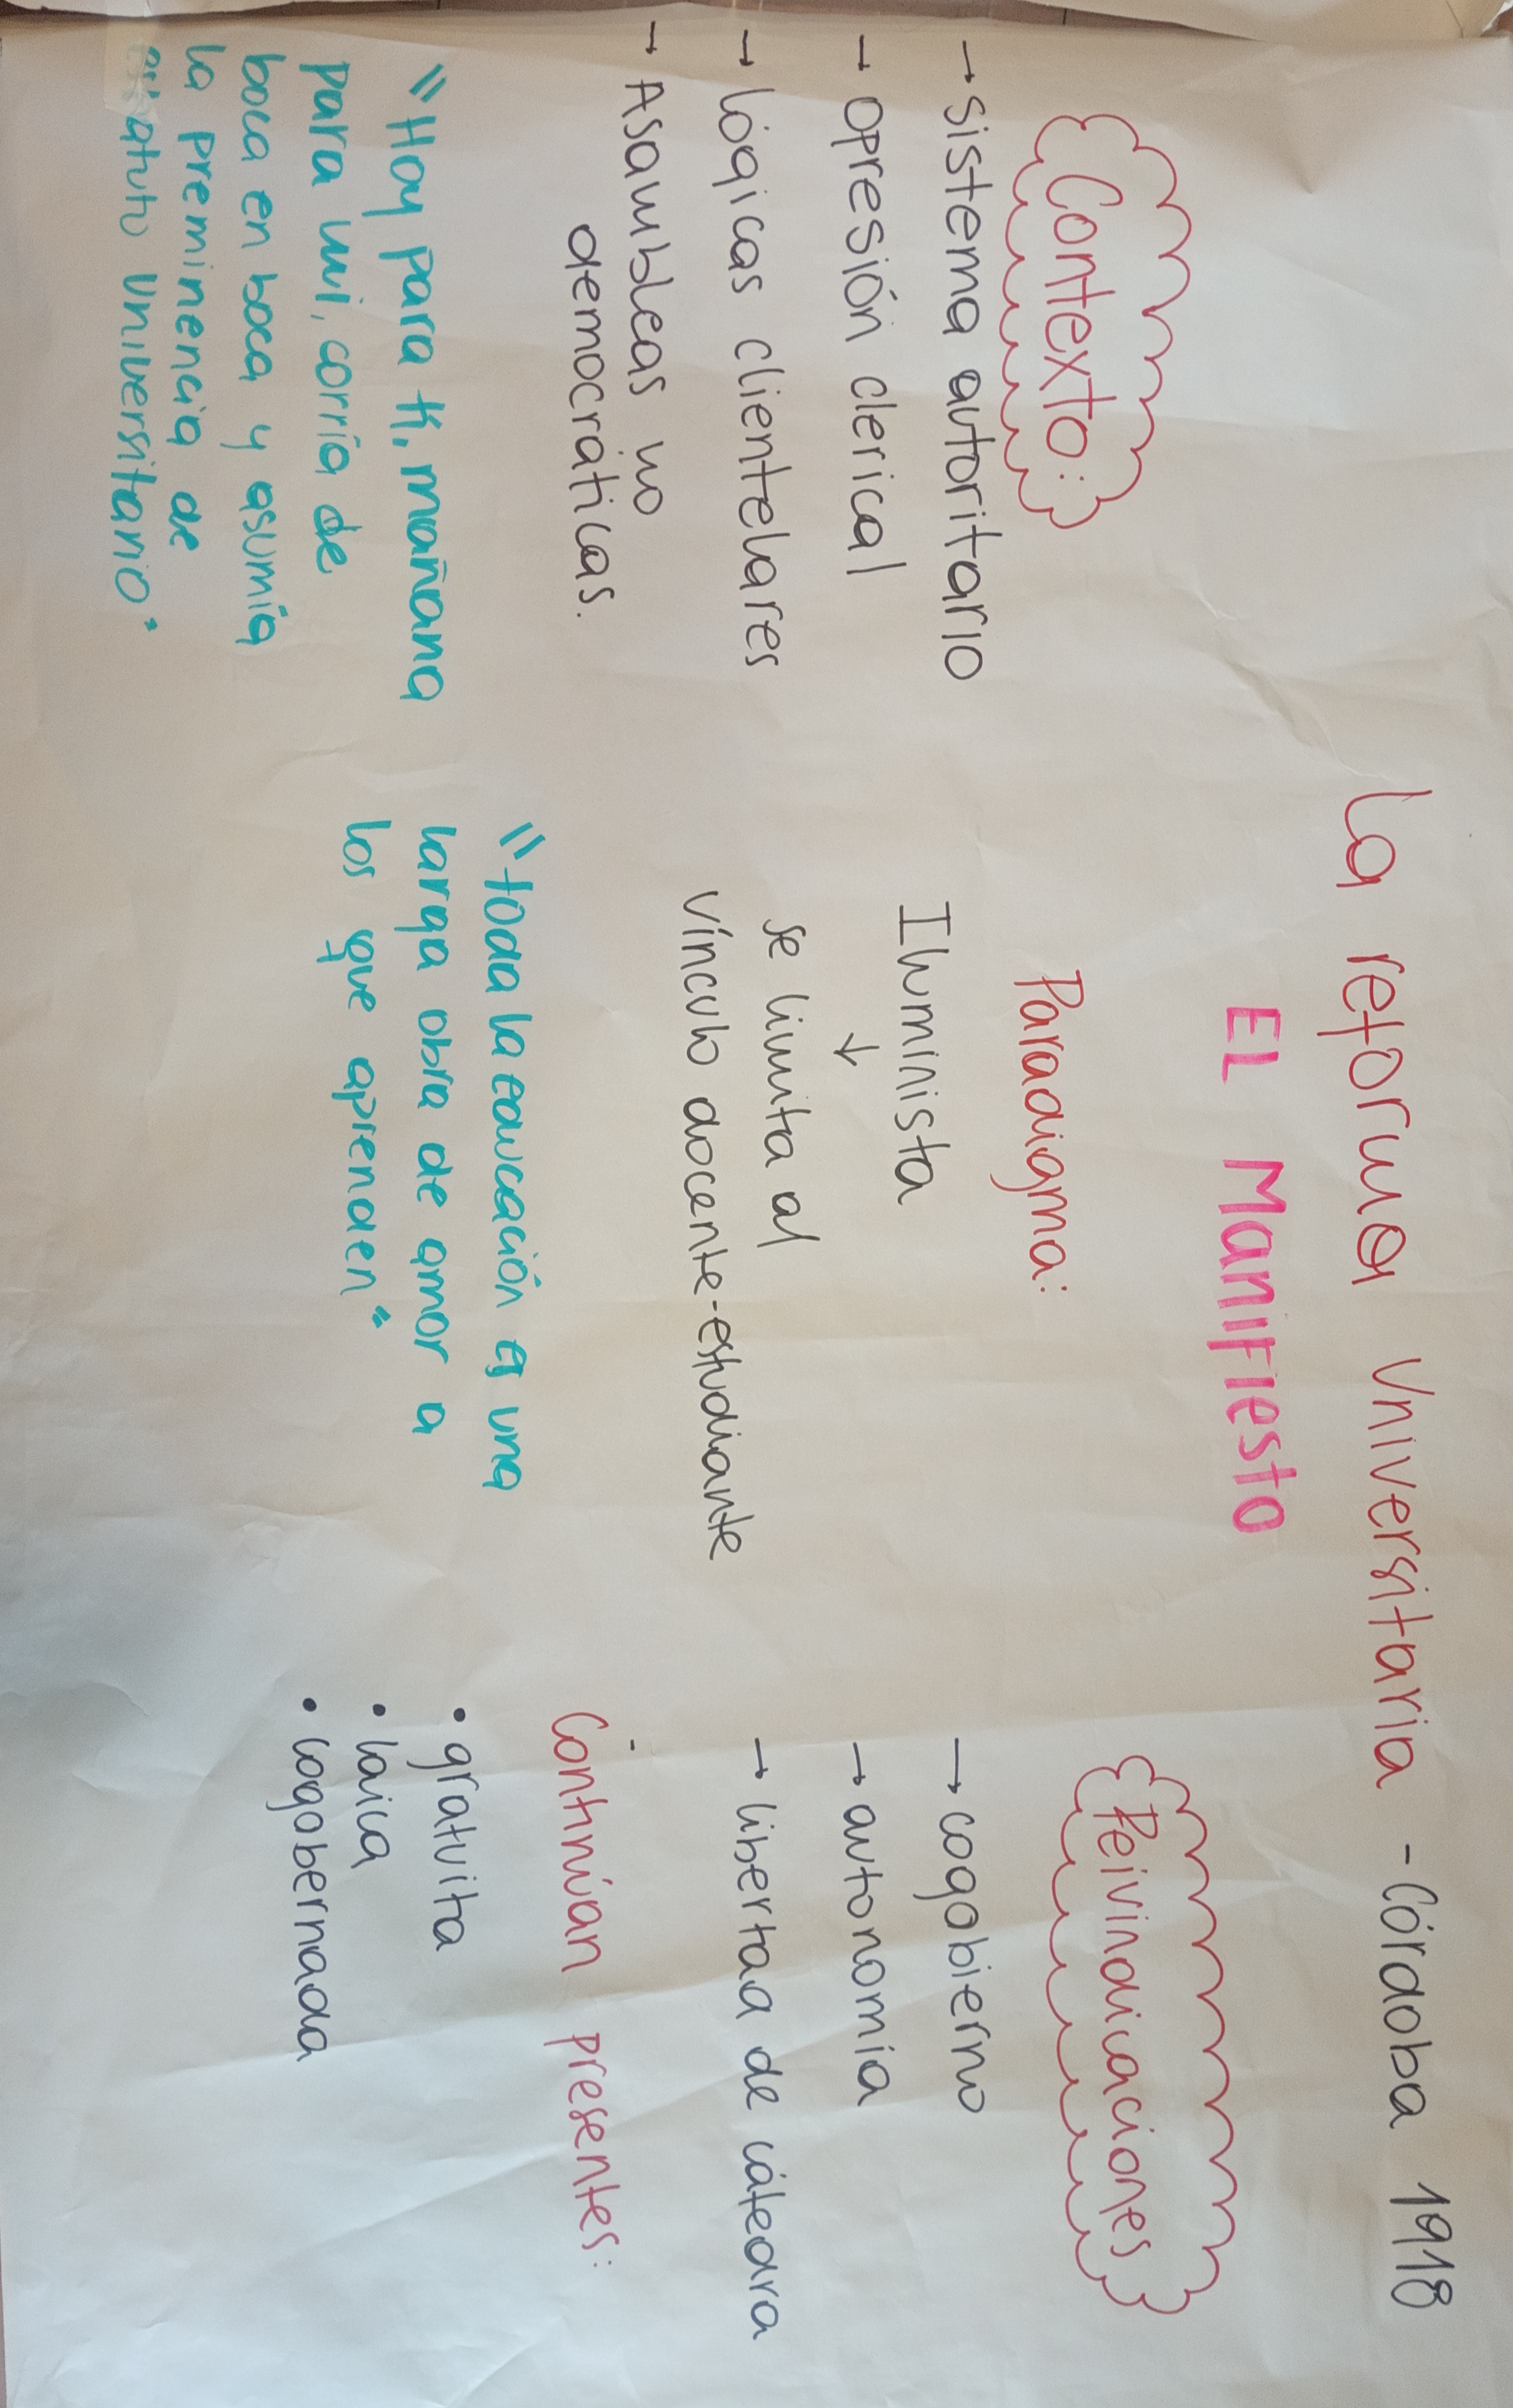 La reforma Universitaria - Córdoba 1918
EL MANIFIESTO
Contexto:
→ sistema autoritario
→ opresión clerical
→ lógicas clientelares
→ Asambleas no
democráticas.
"Hoy para ti, mañana
para mi, corría de
boca en boca y asumía
la preminencia de
universitario"
Paradigma:
Iluminista
↓
se limita al
vínculo docente-estudiante
"toda la educación es una
larga obra de amor a
los que aprenden"
Reivindicaciones
→ cogobierno
→ autonomía
→ libertad de cátedra
Continúan presentes:
• gratuita
• laica
• cogobernada